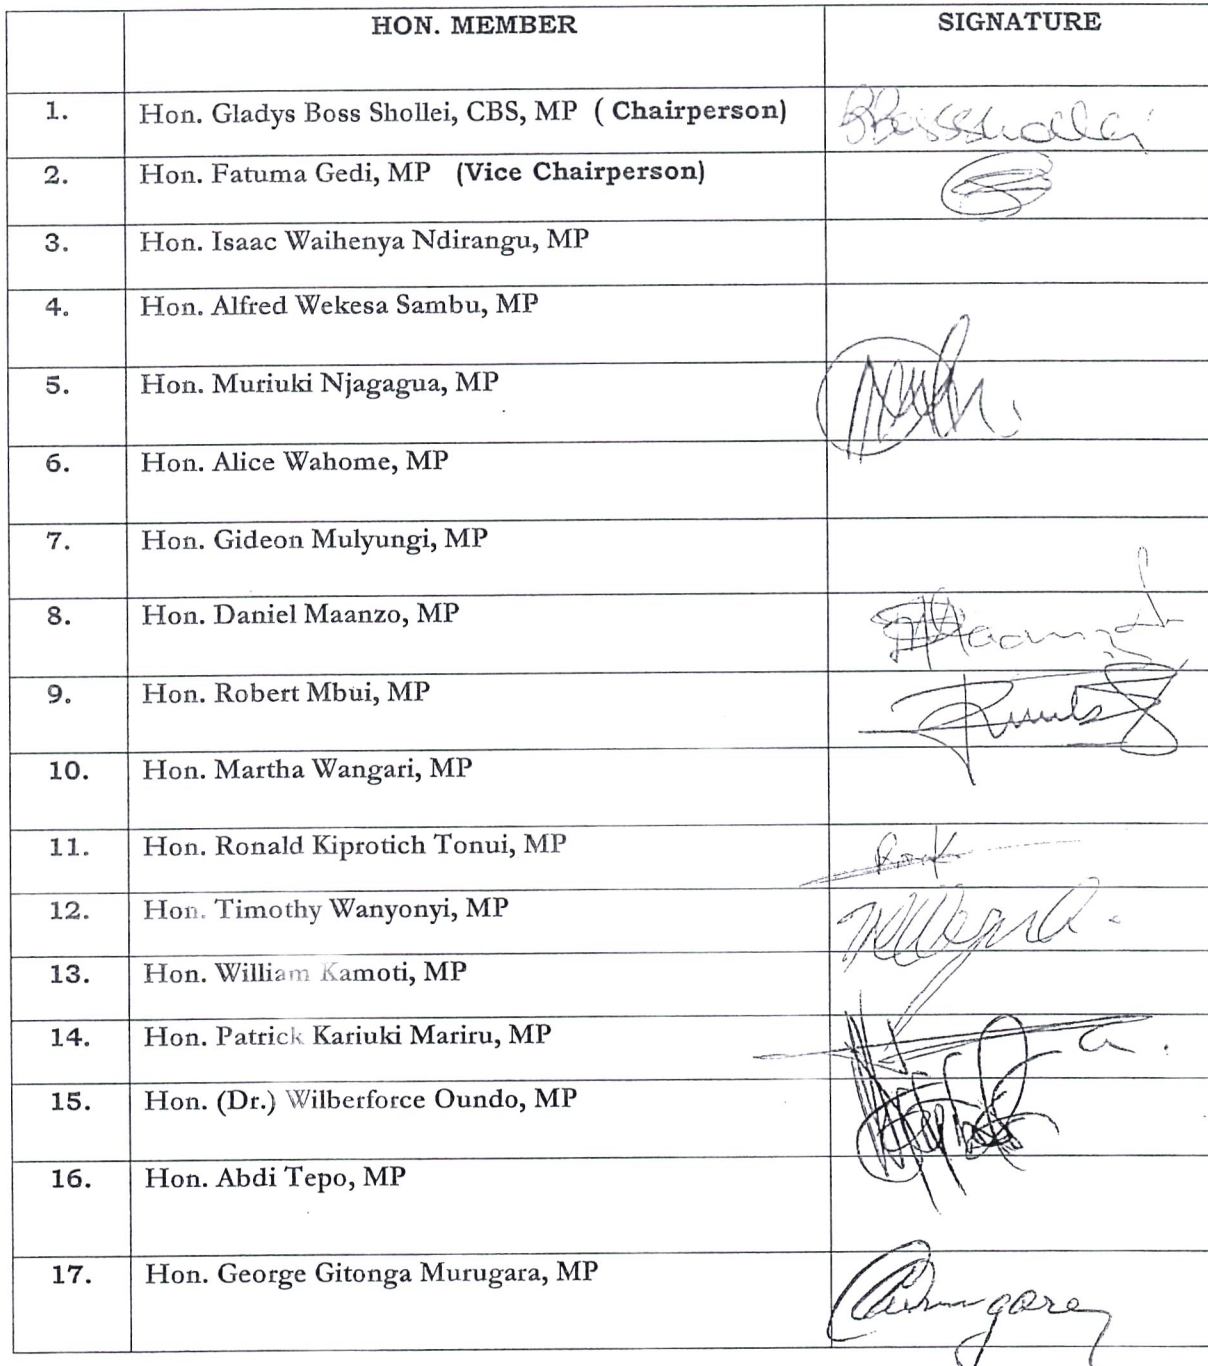 HON. MEMBER SIGNATURE
1. Hon. Gladys Boss Shollei, CBS, MP ( Chairperson)
2. Hon. Fatuma Gedi, MP (Vice Chairperson)
3. Hon. Isaac Waihenya Ndirangu, MP
4. Hon. Alfred Wekesa Sambu, MP
5. Hon. Muriuki Njagagua, MP
6. Hon. Alice Wahome, MP
7. Hon. Gideon Mulyungi, MP
8. Hon. Daniel Maanzo, MP
9. Hon. Robert Mbui, MP
10. Hon. Martha Wangari, MP
11. Hon. Ronald Kiprotich Tonui, MP
12. Hon. Timothy Wanyonyi, MP
13. Hon. William Kamoti, MP
14. Hon. Patrick Kariuki Mariru, MP
15. Hon. (Dr.) Wilberforce Oundo, MP
16. Hon. Abdi Tepo, MP
17. Hon. George Gitonga Murugara, MP